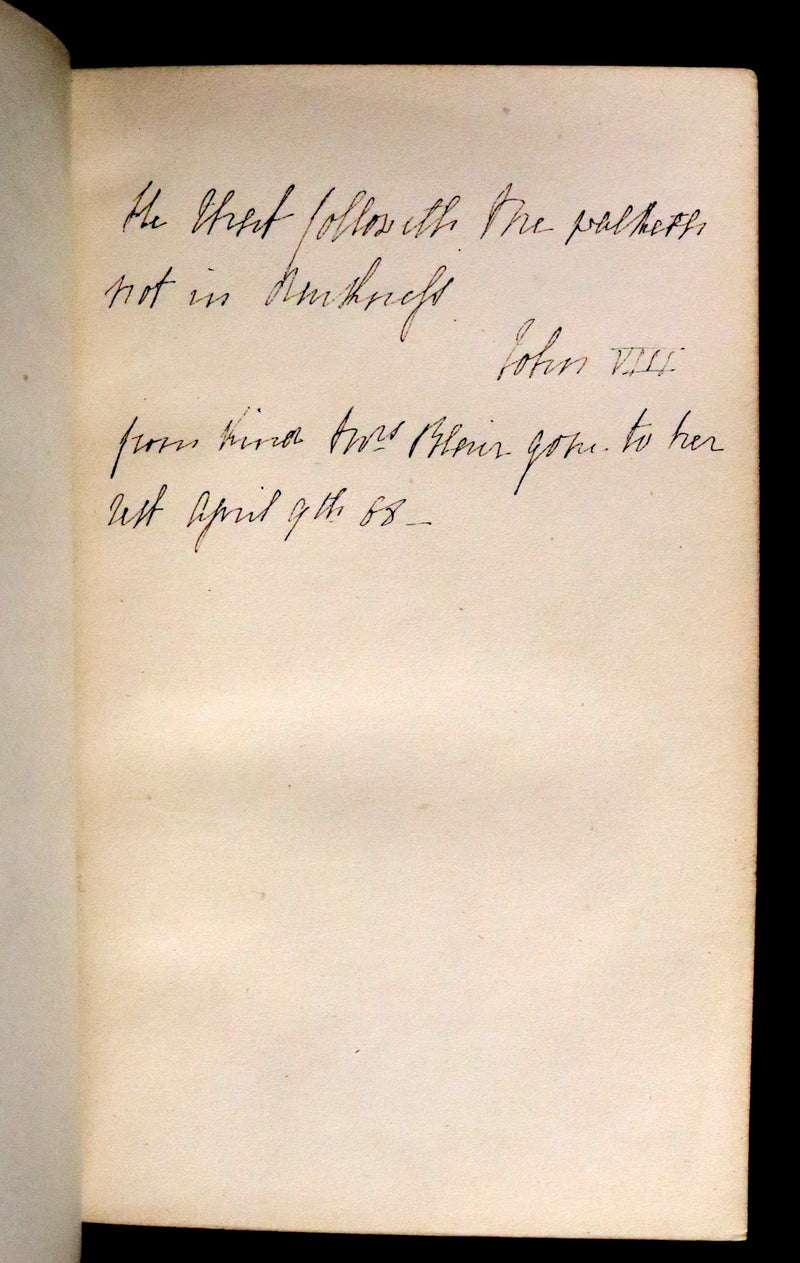 He that followeth Me walketh
not in darkness
John VIII
from kind Mrs Blair gone to her
rest April 9th 68_